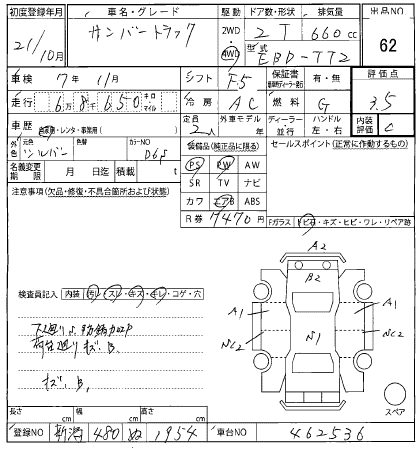 初度登録年月 車名・グレード 駆動 ドア数・形状 排気量 出品NO
21/10月 サンバートラック 2WD 4WD 2 T 660cc 62
型式 EBD-TT2
車検 7年 11月 シフト F5 保証書 有・無 評価点
走行 6万8千650 キロ マイル 冷房 AC 燃料 G 3.5
車歴 自家用・レンタ・事業用( ) 定員 2人 外車モデル 年 ディーラー 並行 ハンドル 左・右 内装評価 C
外色 元色 シルバー 色替 カラーNO D6S 装備品(純正品に限る) セールスポイント(正常に作動するもの)
名義変更期限 月 日迄 積載 t PS PW AW
注意事項(欠品・修復・不具合箇所および状態) SR TV ナビ
カワ エアB ABS
R券 7470円 Fガラス トビ石・キズ・ヒビ・ワレ・リペア跡
A2
B2
検査員記入 内装 汚レ・スレ・キズ・キレ・コゲ・穴
A1 A1
下廻り
荷台廻りキズ、B.
キズ、B,
スペア
長さ cm 幅 cm 高さ cm
登録NO 新潟 480 ぬ 1954 車台NO 462536